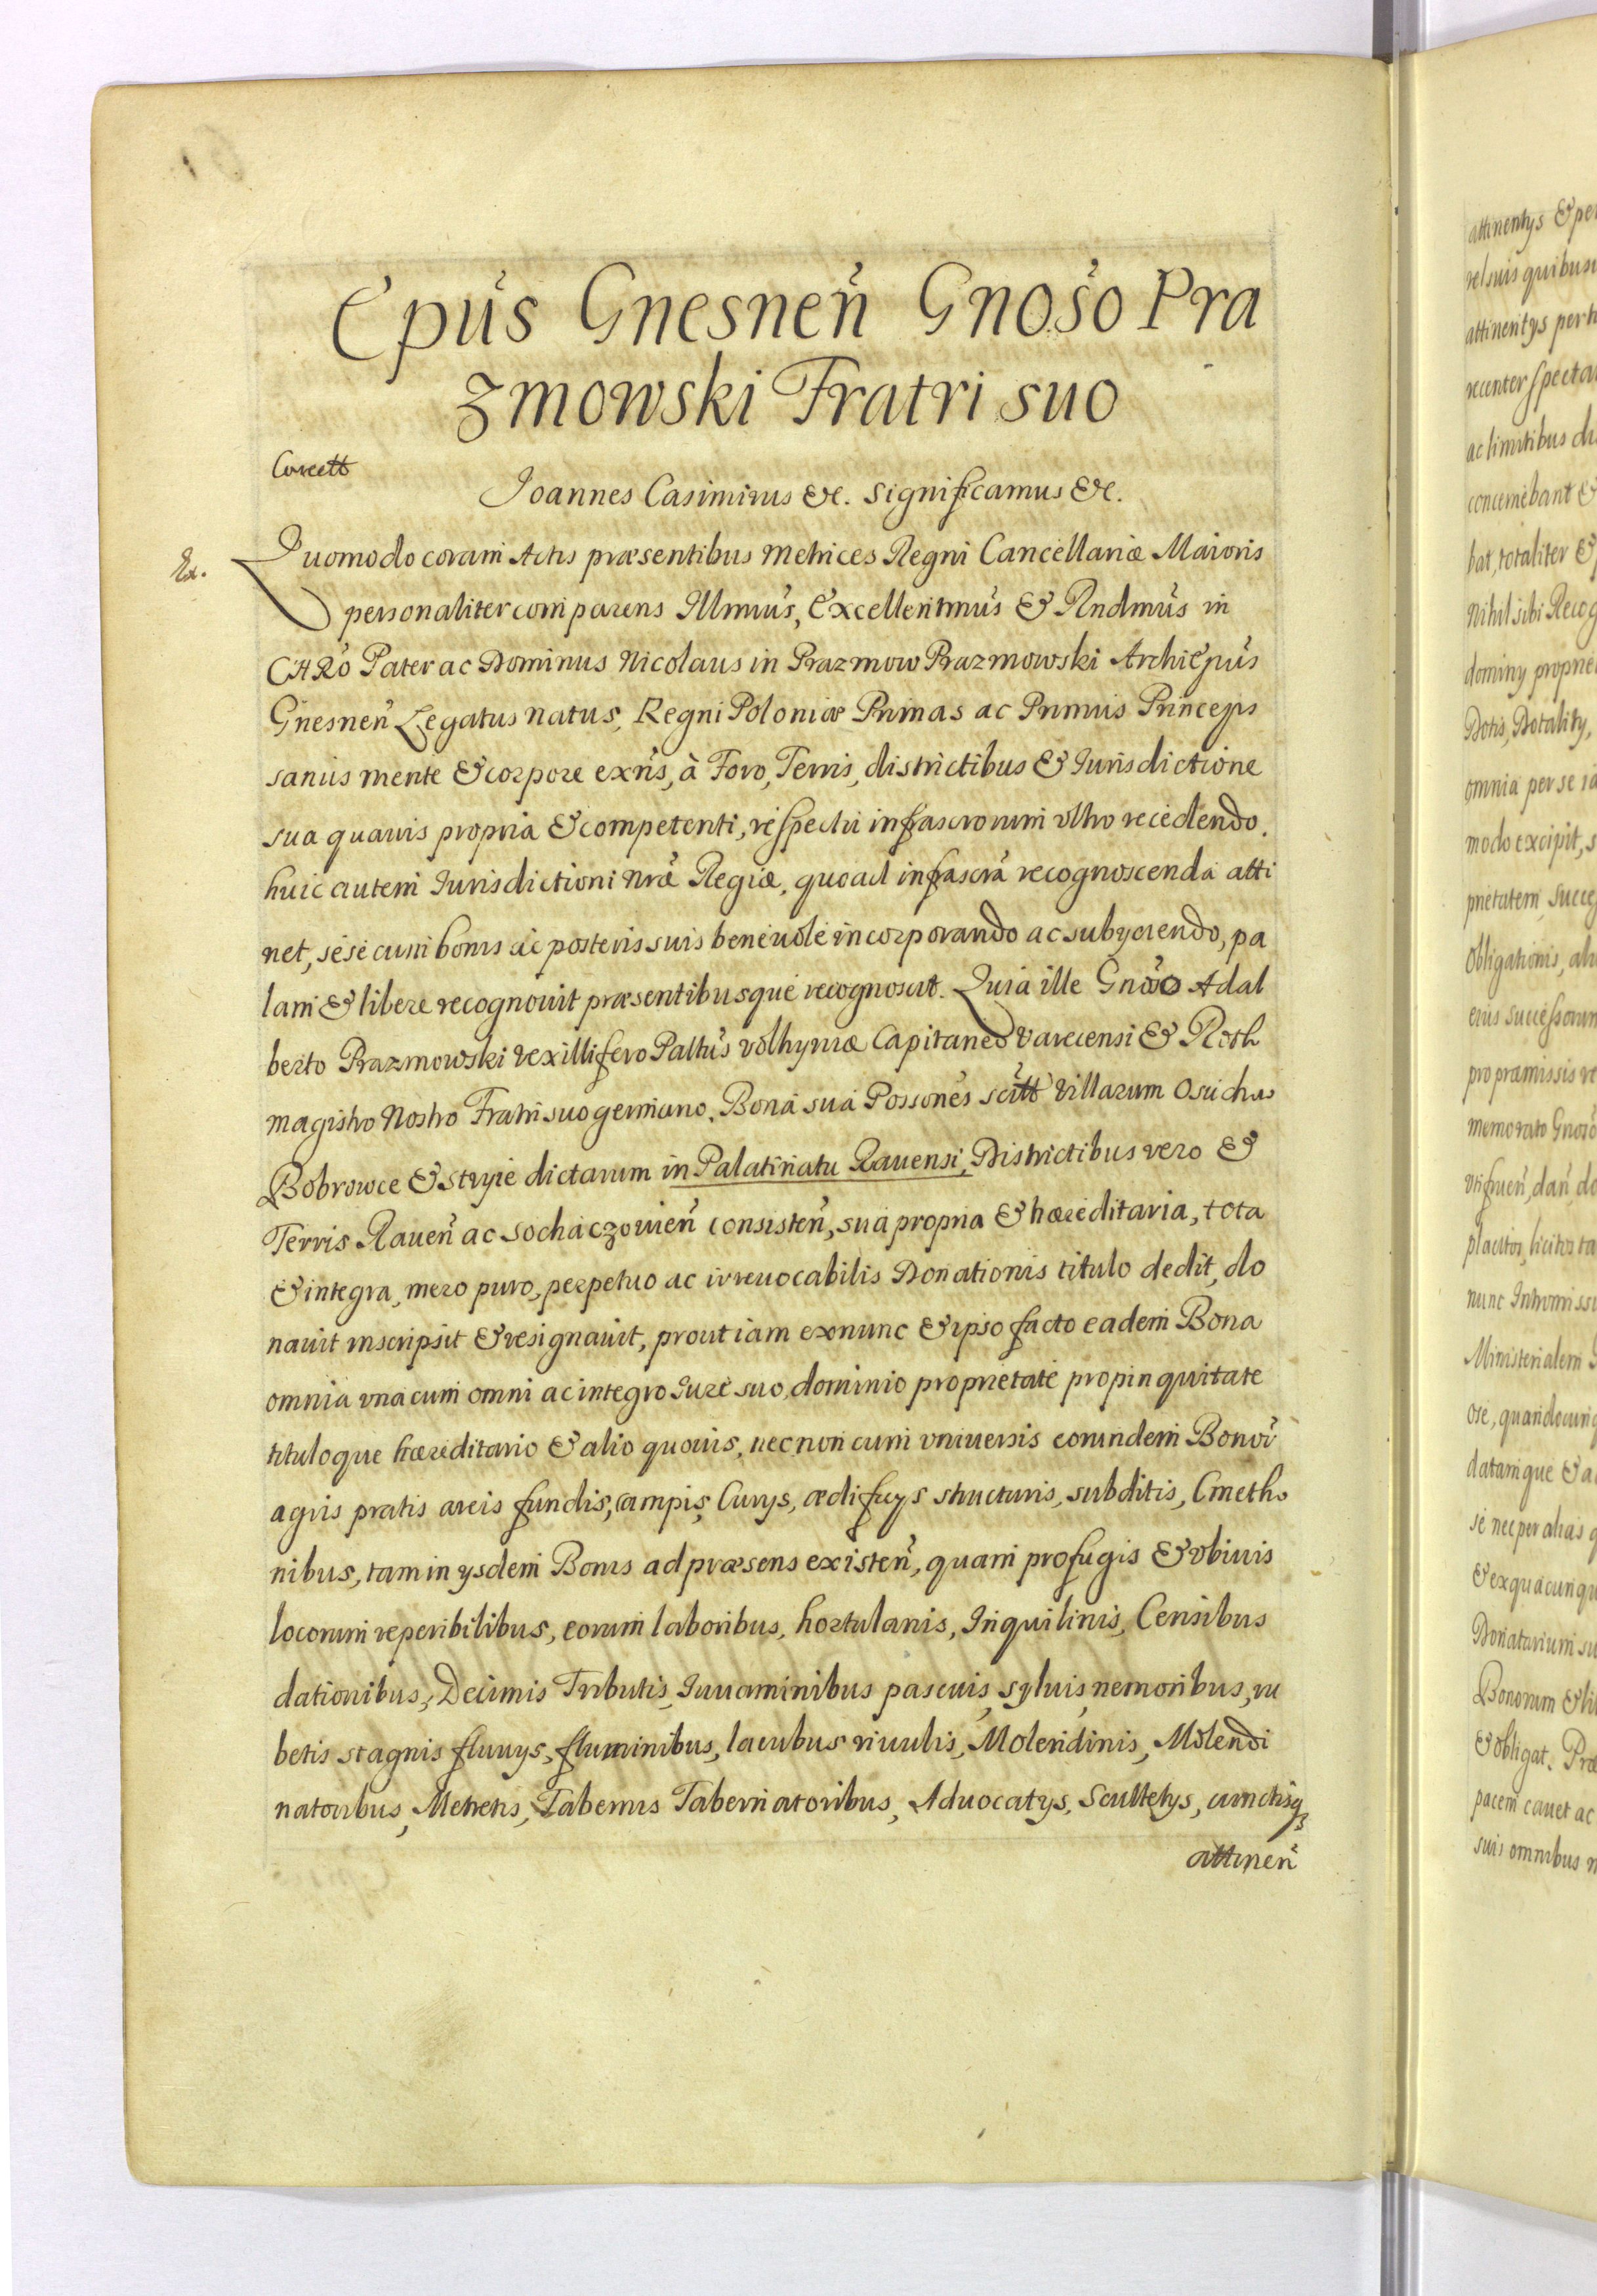 Epu̓s Gnesnen̓ Gnoso̓ Pra
zmowski Fratri suo
Joannes Casimirus &c. Significamus &c.
Ex.
Quomodo coram Actis præsentibus Metrices Regni Cancellariæ Maioris
personaliter comparens Illmus, Excellentmus & Rndmus in
CHRo Pater ac Dominus Nicolaus in Prazmow Prazmowski Archiepus
Gnesnen̓ Legatus natus, Regni Poloniæ Primas ac Primus Princeps
sanus mente & corpore exns, à Foro, Terris, districtibus & Jurisdictione
sua quauis propria & competenti, respectu infrascrorum vltro recedendo.
huic autem Jurisdictioni nræ Regiæ, quoad infrascra recognoscenda atti
net, sese cum bonis ac posteris suis beneuole incorporando ac subyciendo, pa
lam & libere recognouit præsentibusque recognoscit. Quia ille Gnoso Adal
berto Prazmowski vexillifero Paltus Volhyniæ Capitaneo Varecensi & Roth
magistro Nostro Fratri suo germano. Bona sua Possones scitt Villarum Osuchow
Bobrowce & Stryie dictarum in Palatinatu Rauensi, Districtibus vero &
Terris Rauen̓ ac Sochaczouien̓ consisten̓, sua propria & hæreditaria, tota
& integra, mero puro, perpetuo ac irreuocabilis Donationis titulo dedit, do
nauit inscripsit & resignauit, prout iam exnunc & ipso facto eadem Bona
omnia vna cum omni ac integro Jure suo, dominio proprietate propinquitate
tituloque hæreditario & alio quouis, necnon cum vniuersis eorundem Bonor̓
agris pratis areis fundis, campis, Curys, ædificys structuris, subditis, Cmetho
nibus, tam in ysdem Bonis ad præsens existen̓, quam profugis & vbiuis
locorum reperibilibus, eorum laboribus, hortulanis, Inquilinis, Censibus
dationibus, Decimis Tributis, Juuaminibus pascuis, syluis, nemoribus, ru
betis stagnis fluuys, fluminibus, lacubus riuulis, Molendinis, Molendi
natoribus, Metretis, Tabernis Tabernatoribus, Aduocatys, Scultetys, cunctisq3
attinen̓